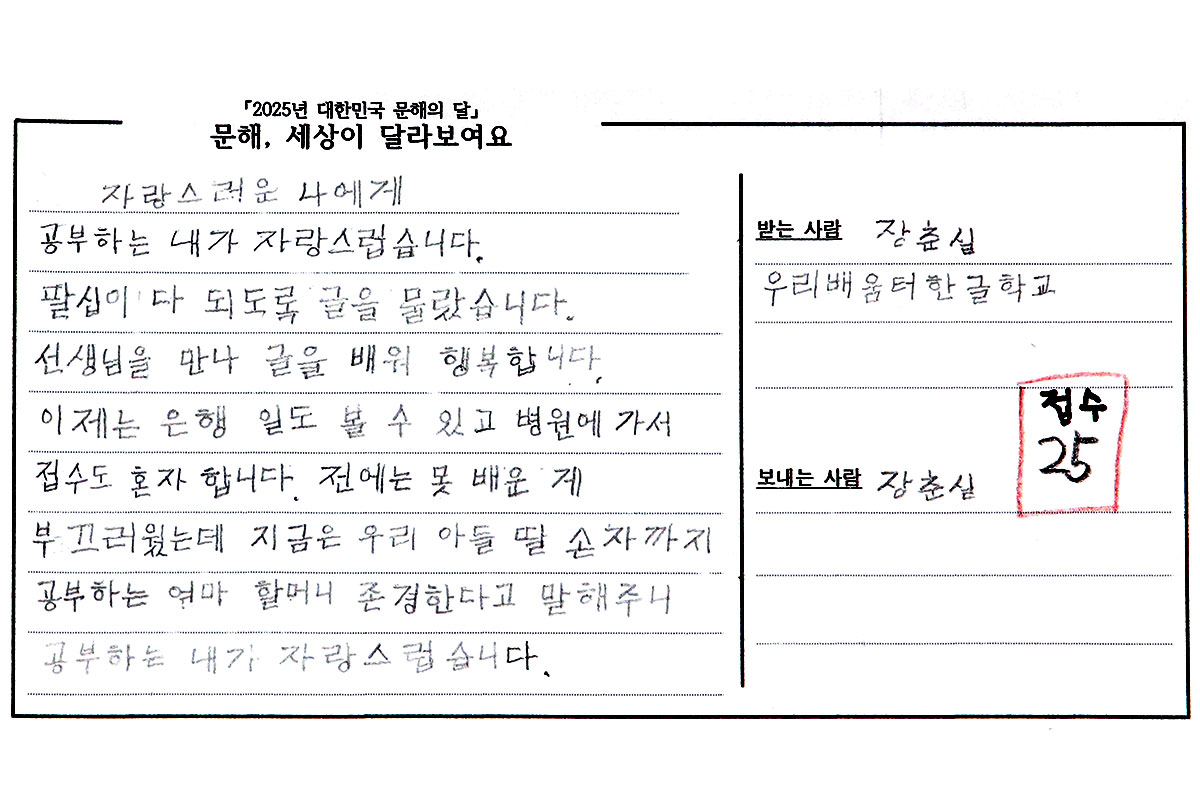 「2025년 대한민국 문해의 달」
문해, 세상이 달라보여요
자랑스러운 나에게
공부하는 내가 자랑스럽습니다.
팔십이 다 되도록 글을 몰랐습니다.
선생님을 만나 글을 배워 행복합니다.
이제는 은행 일도 볼 수 있고 병원에 가서
접수도 혼자 합니다. 전에는 못 배운 게
부끄러웠는데 지금은 우리 아들 딸 손자까지
공부하는 엄마 할머니 존경한다고 말해주니
공부하는 내가 자랑스럽습니다.
받는 사람 장춘실
우리배움터한글학교
접수
25
보내는 사람 장춘실